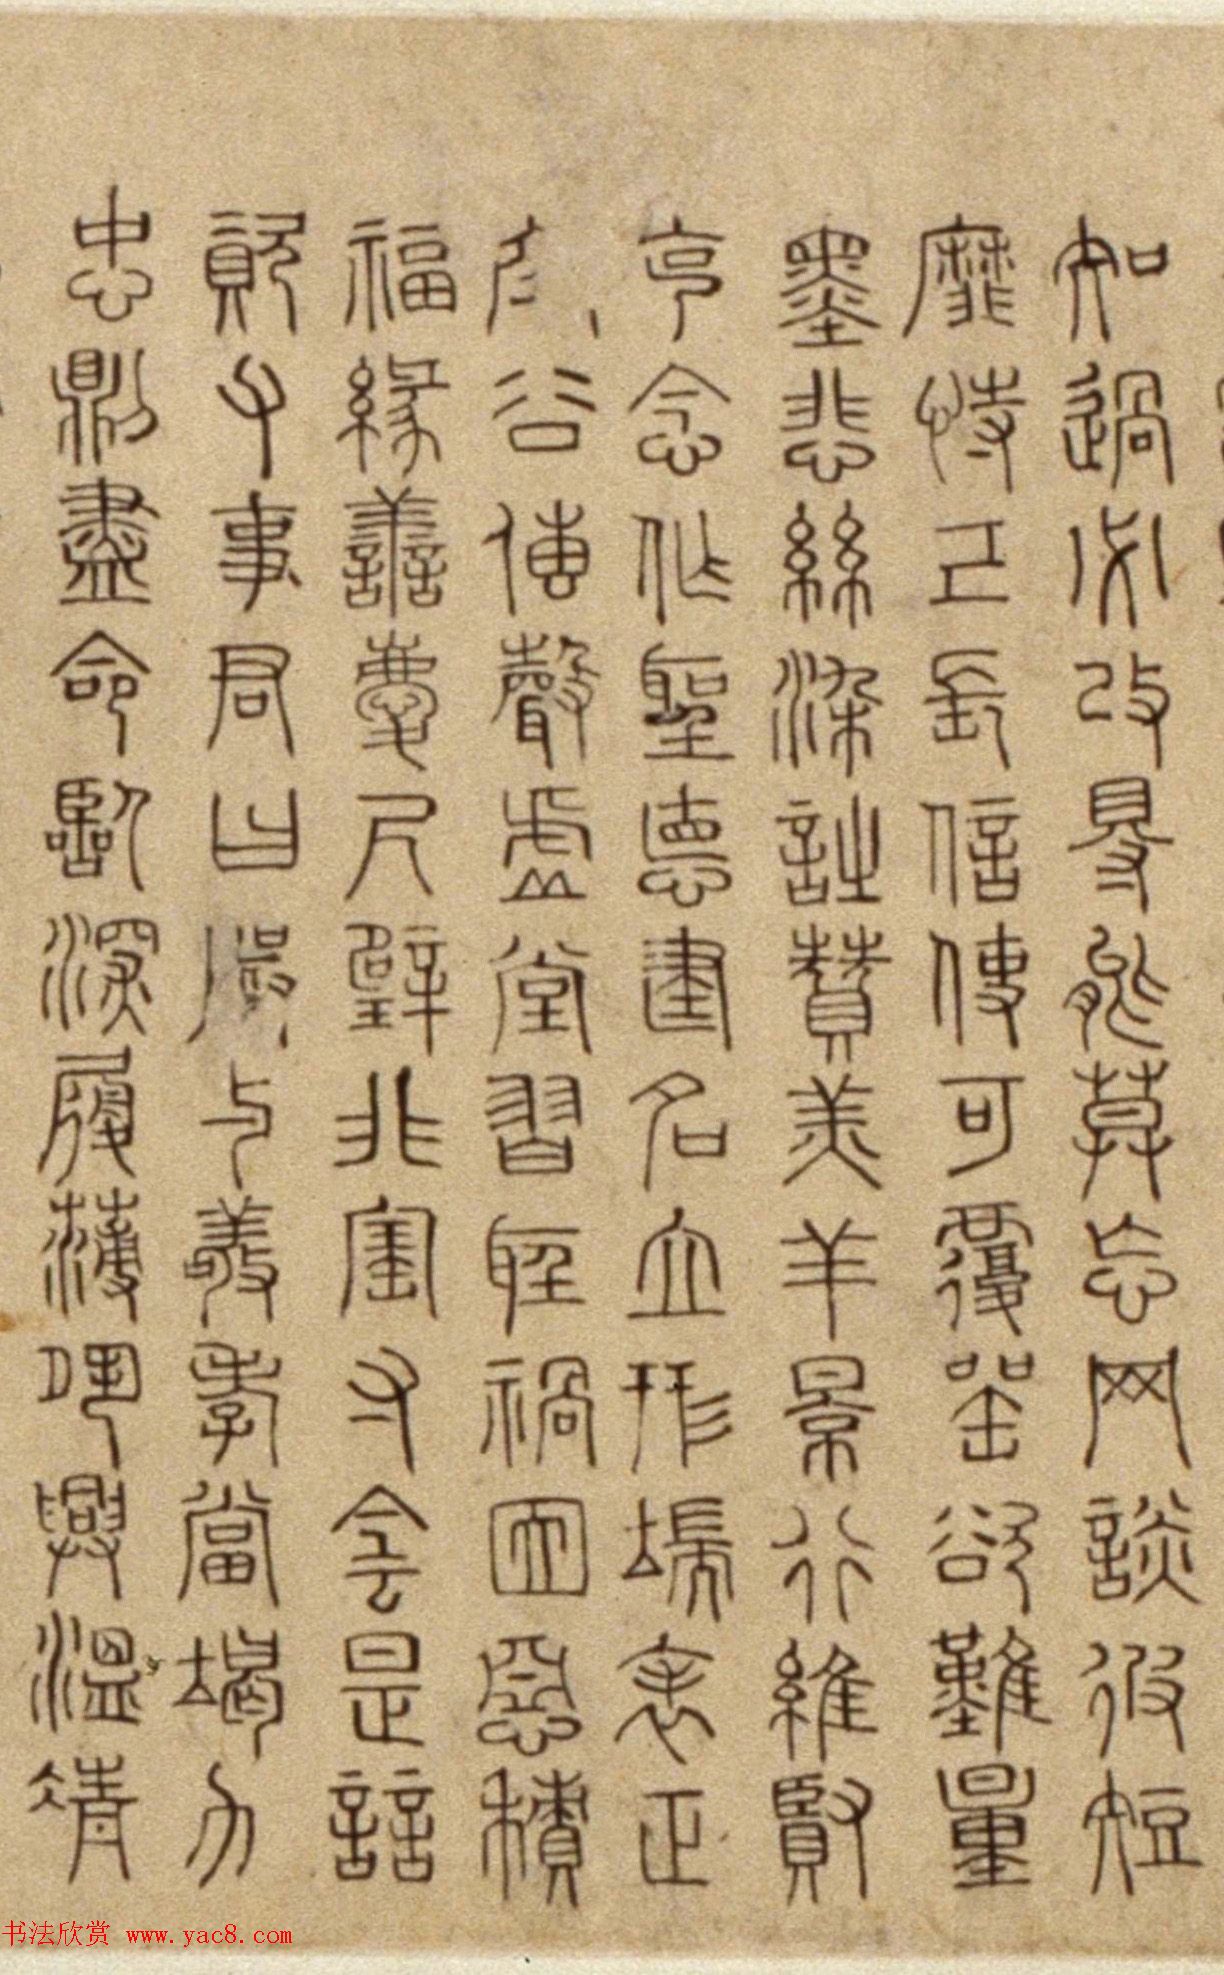 知過必改得能莫忘罔談彼短
靡恃己長信使可覆器欲難量
墨悲絲染詩贊羔羊景行維賢
克念作聖德建名立形端表正
空谷傳聲虛堂習聽禍因惡積
福緣善慶尺璧非寶寸陰是競
資父事君曰嚴與敬孝當竭力
忠則盡命臨深履薄夙興溫凊
书法欣赏 www.yac8.com